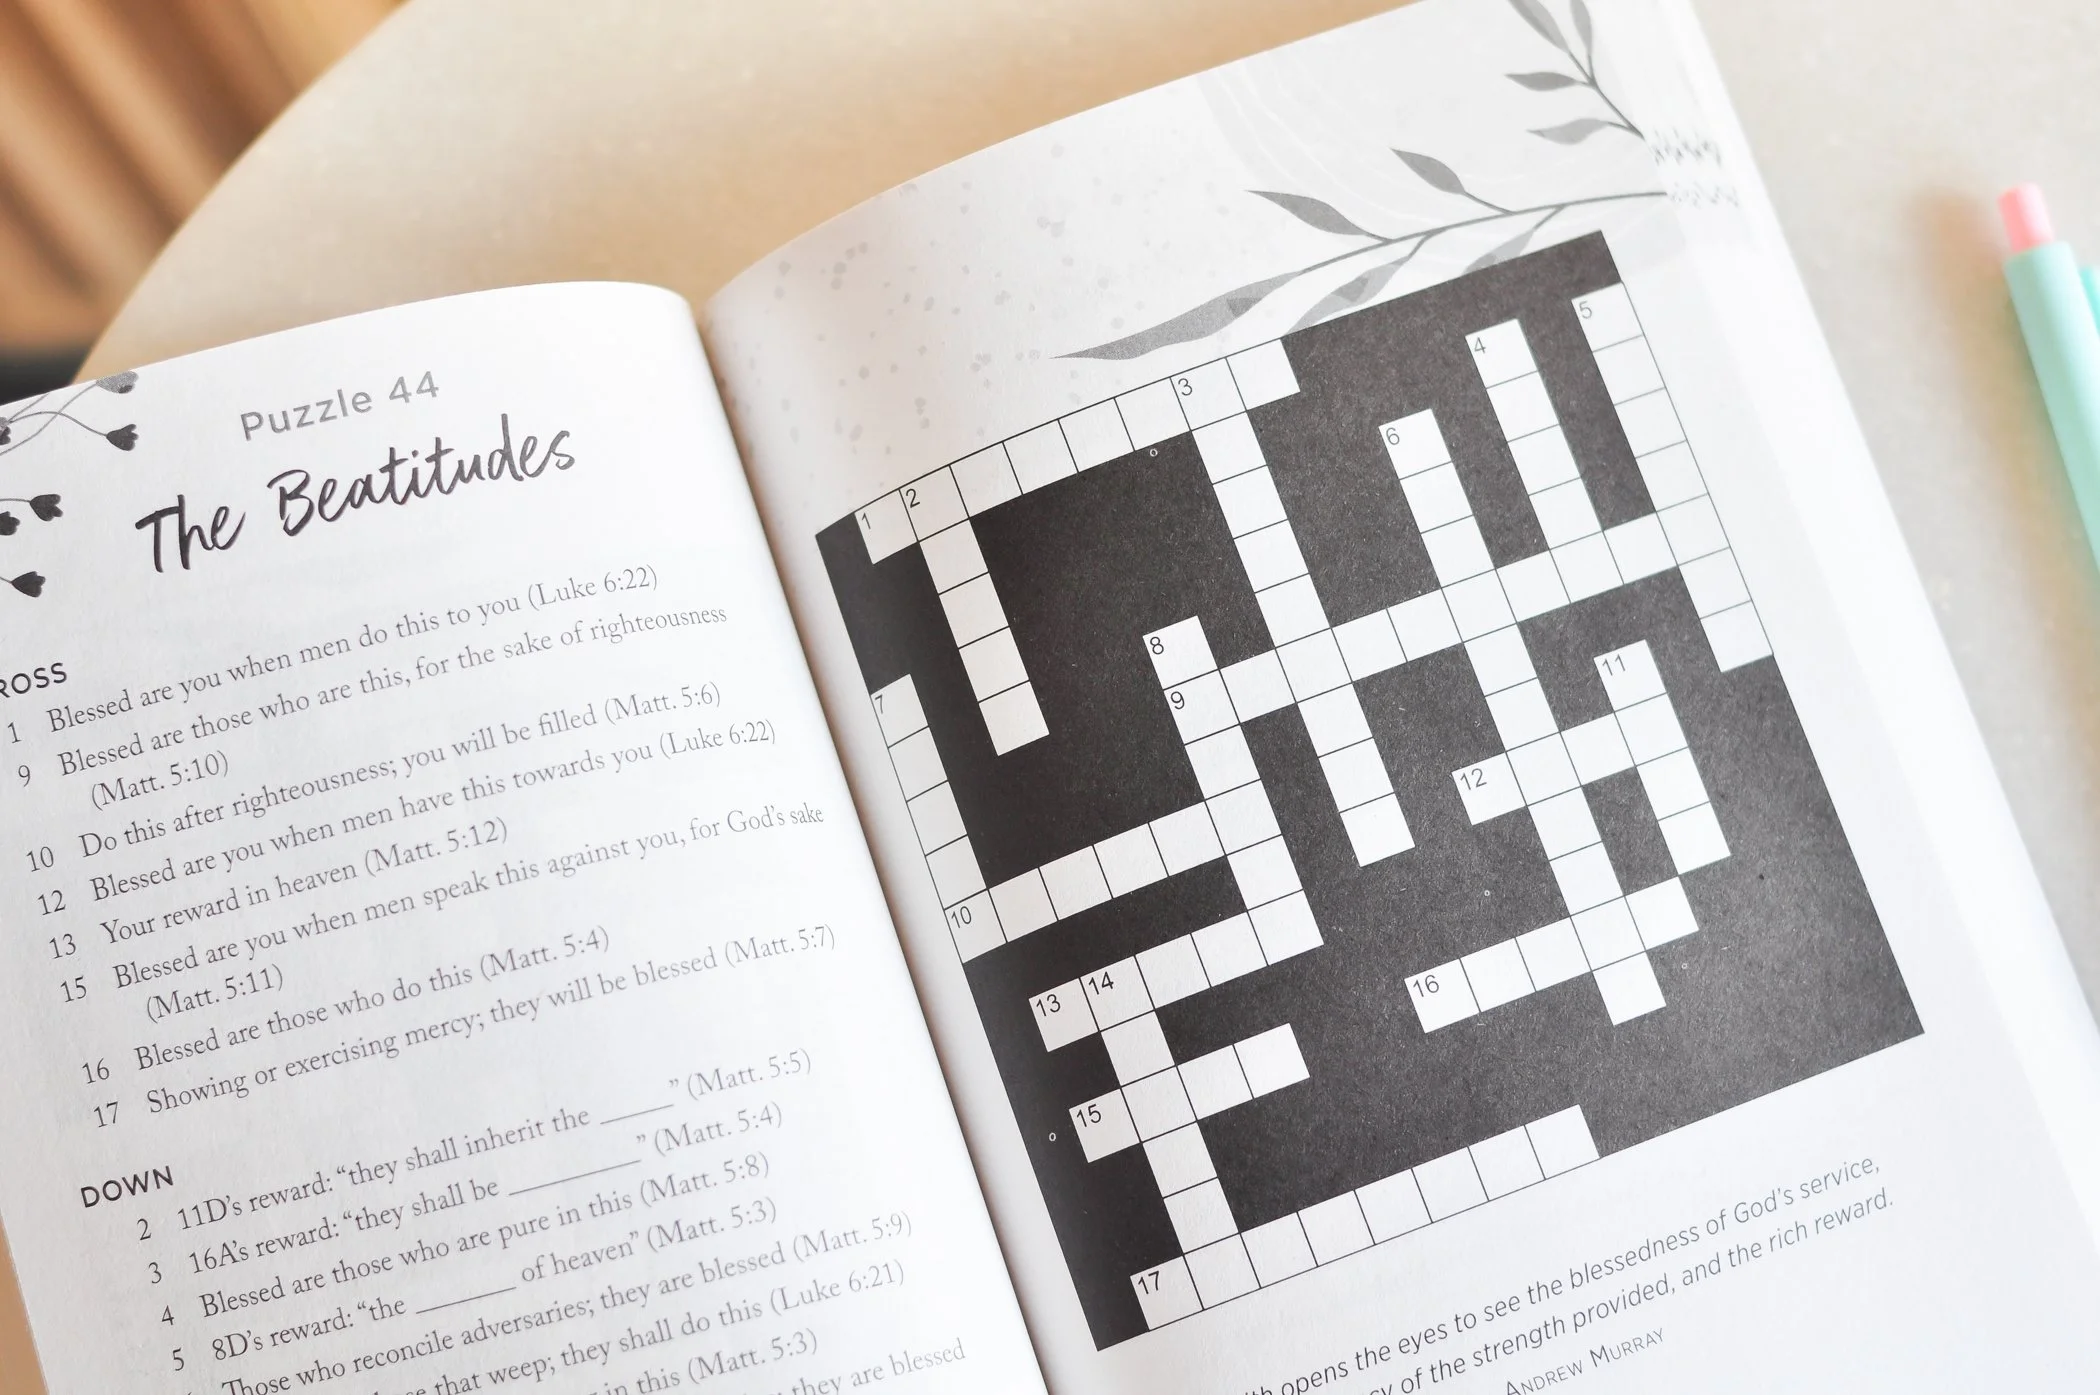 Puzzle 44
The Beatitudes
ROSS
1 Blessed are you when men do this to you (Luke 6:22)
9 Blessed are those who are this, for the sake of righteousness
(Matt. 5:10)
10 Do this after righteousness; you will be filled (Matt. 5:6)
12 Blessed are you when men have this towards you (Luke 6:22)
13 Your reward in heaven (Matt. 5:12)
15 Blessed are you when men speak this against you, for God's sake
(Matt. 5:11)
16 Blessed are those who do this (Matt. 5:4)
17 Showing or exercising mercy; they will be blessed (Matt. 5:7)
DOWN
2 11D's reward: “they shall inherit the _____” (Matt. 5:5)
3 16A's reward: “they shall be _________” (Matt. 5:4)
4 Blessed are those who are pure in this (Matt. 5:8)
5 8D's reward: “the _______ of heaven” (Matt. 5:3)
Those who reconcile adversaries; they are blessed (Matt. 5:9)
that weep; they shall do this (Luke 6:21)
in this (Matt. 5:3)
they are blessed
5
4
3
6
2
1
8
11
7
9
12
10
14
13
16
15
17
opens the eyes to see the blessedness of God's service,
of the strength provided, and the rich reward.
Andrew Murray